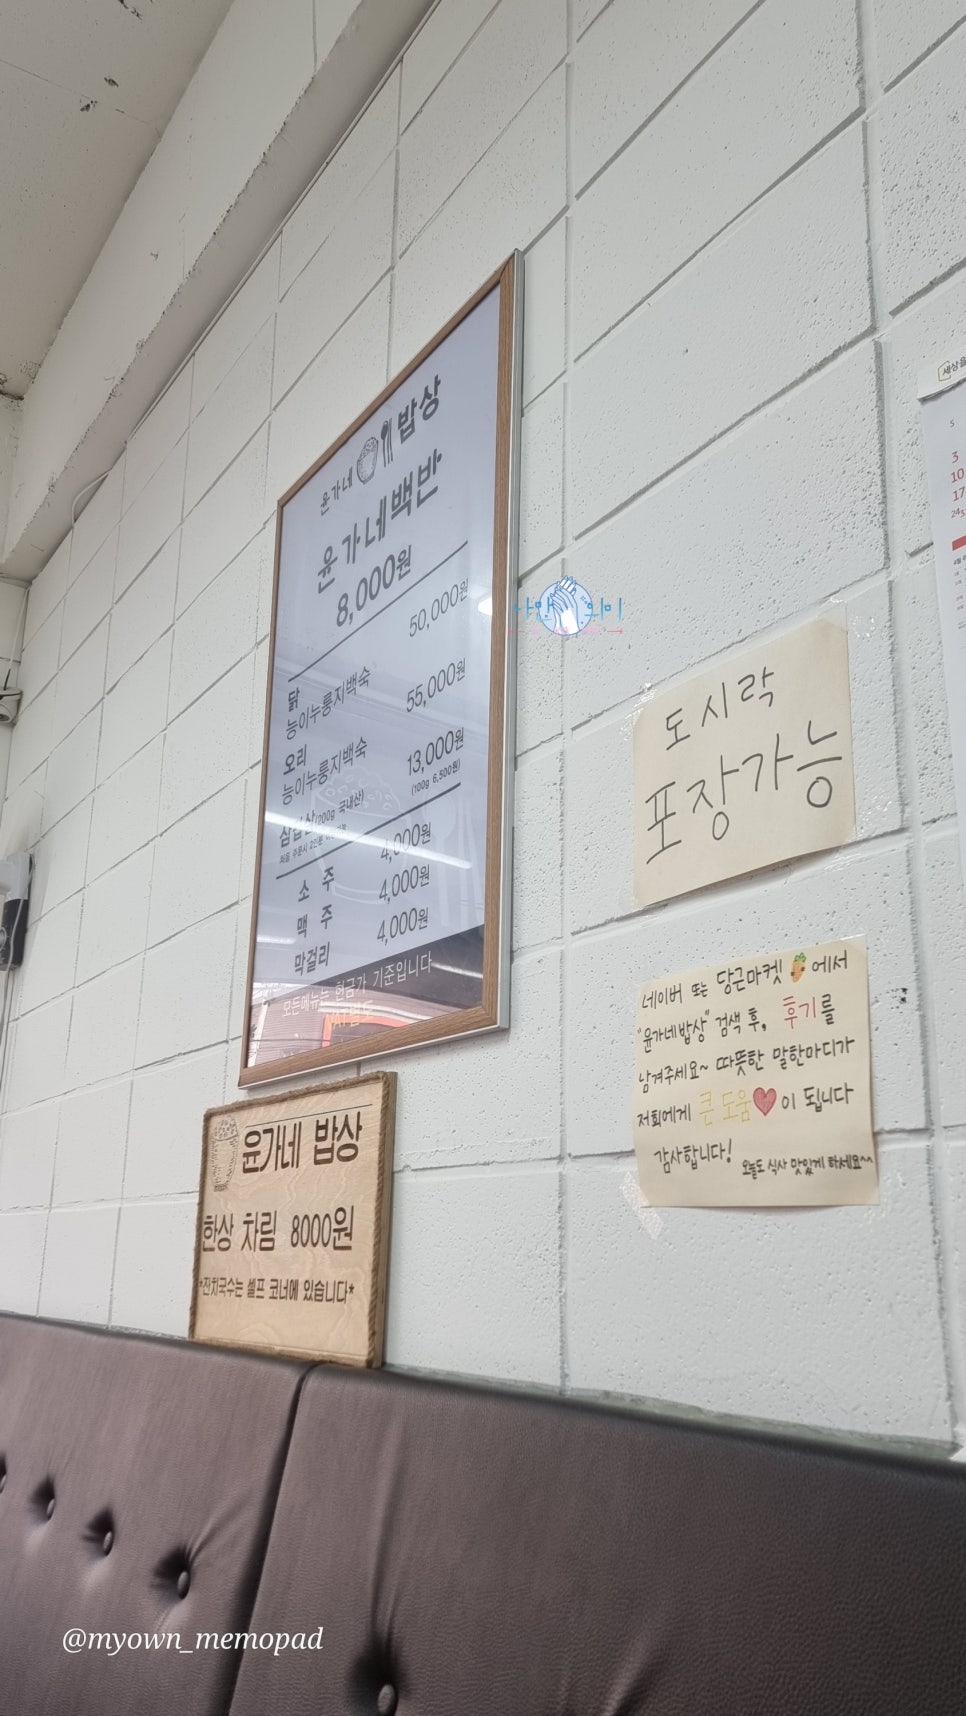 윤가네 밥상
윤가네백반
8,000원
닭 50,000원
능이누룽지백숙
오리 55,000원
능이누룽지백숙
삼겹살(200g 국내산) 13,000원
(100g 6,500원)
소 주 4,000원
맥 주 4,000원
막걸리 4,000원
모든메뉴는 현금가 기준입니다
VAT별도
윤가네 밥상
한상 차림 8000원
*잔치국수는 셀프 코너에 있습니다*
도시락
포장가능
네이버 또는 당근마켓 에서
"윤가네밥상" 검색 후, 후기를
남겨주세요~ 따뜻한 말한마디가
저희에게 큰 도움♥이 됩니다
감사합니다! 오늘도 식사 맛있게 하세요^^
세상을
S
3
10
17
@myown_memopad